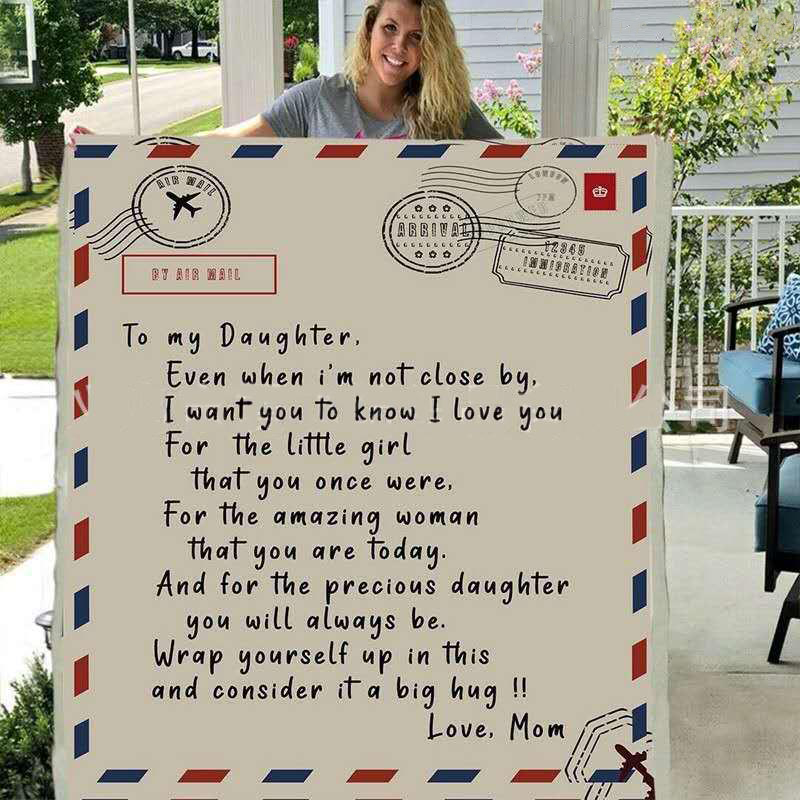 AIR MAIL
LONDON
7PM
ARRIVAL
12345
IMMIGRATION
BY AIR MAIL
To my Daughter,
Even when i'm not close by,
I want you to know I love you
For the little girl
that you once were,
For the amazing woman
that you are today.
And for the precious daughter
you will always be.
Wrap yourself up in this
and consider it a big hug !!
Love, Mom